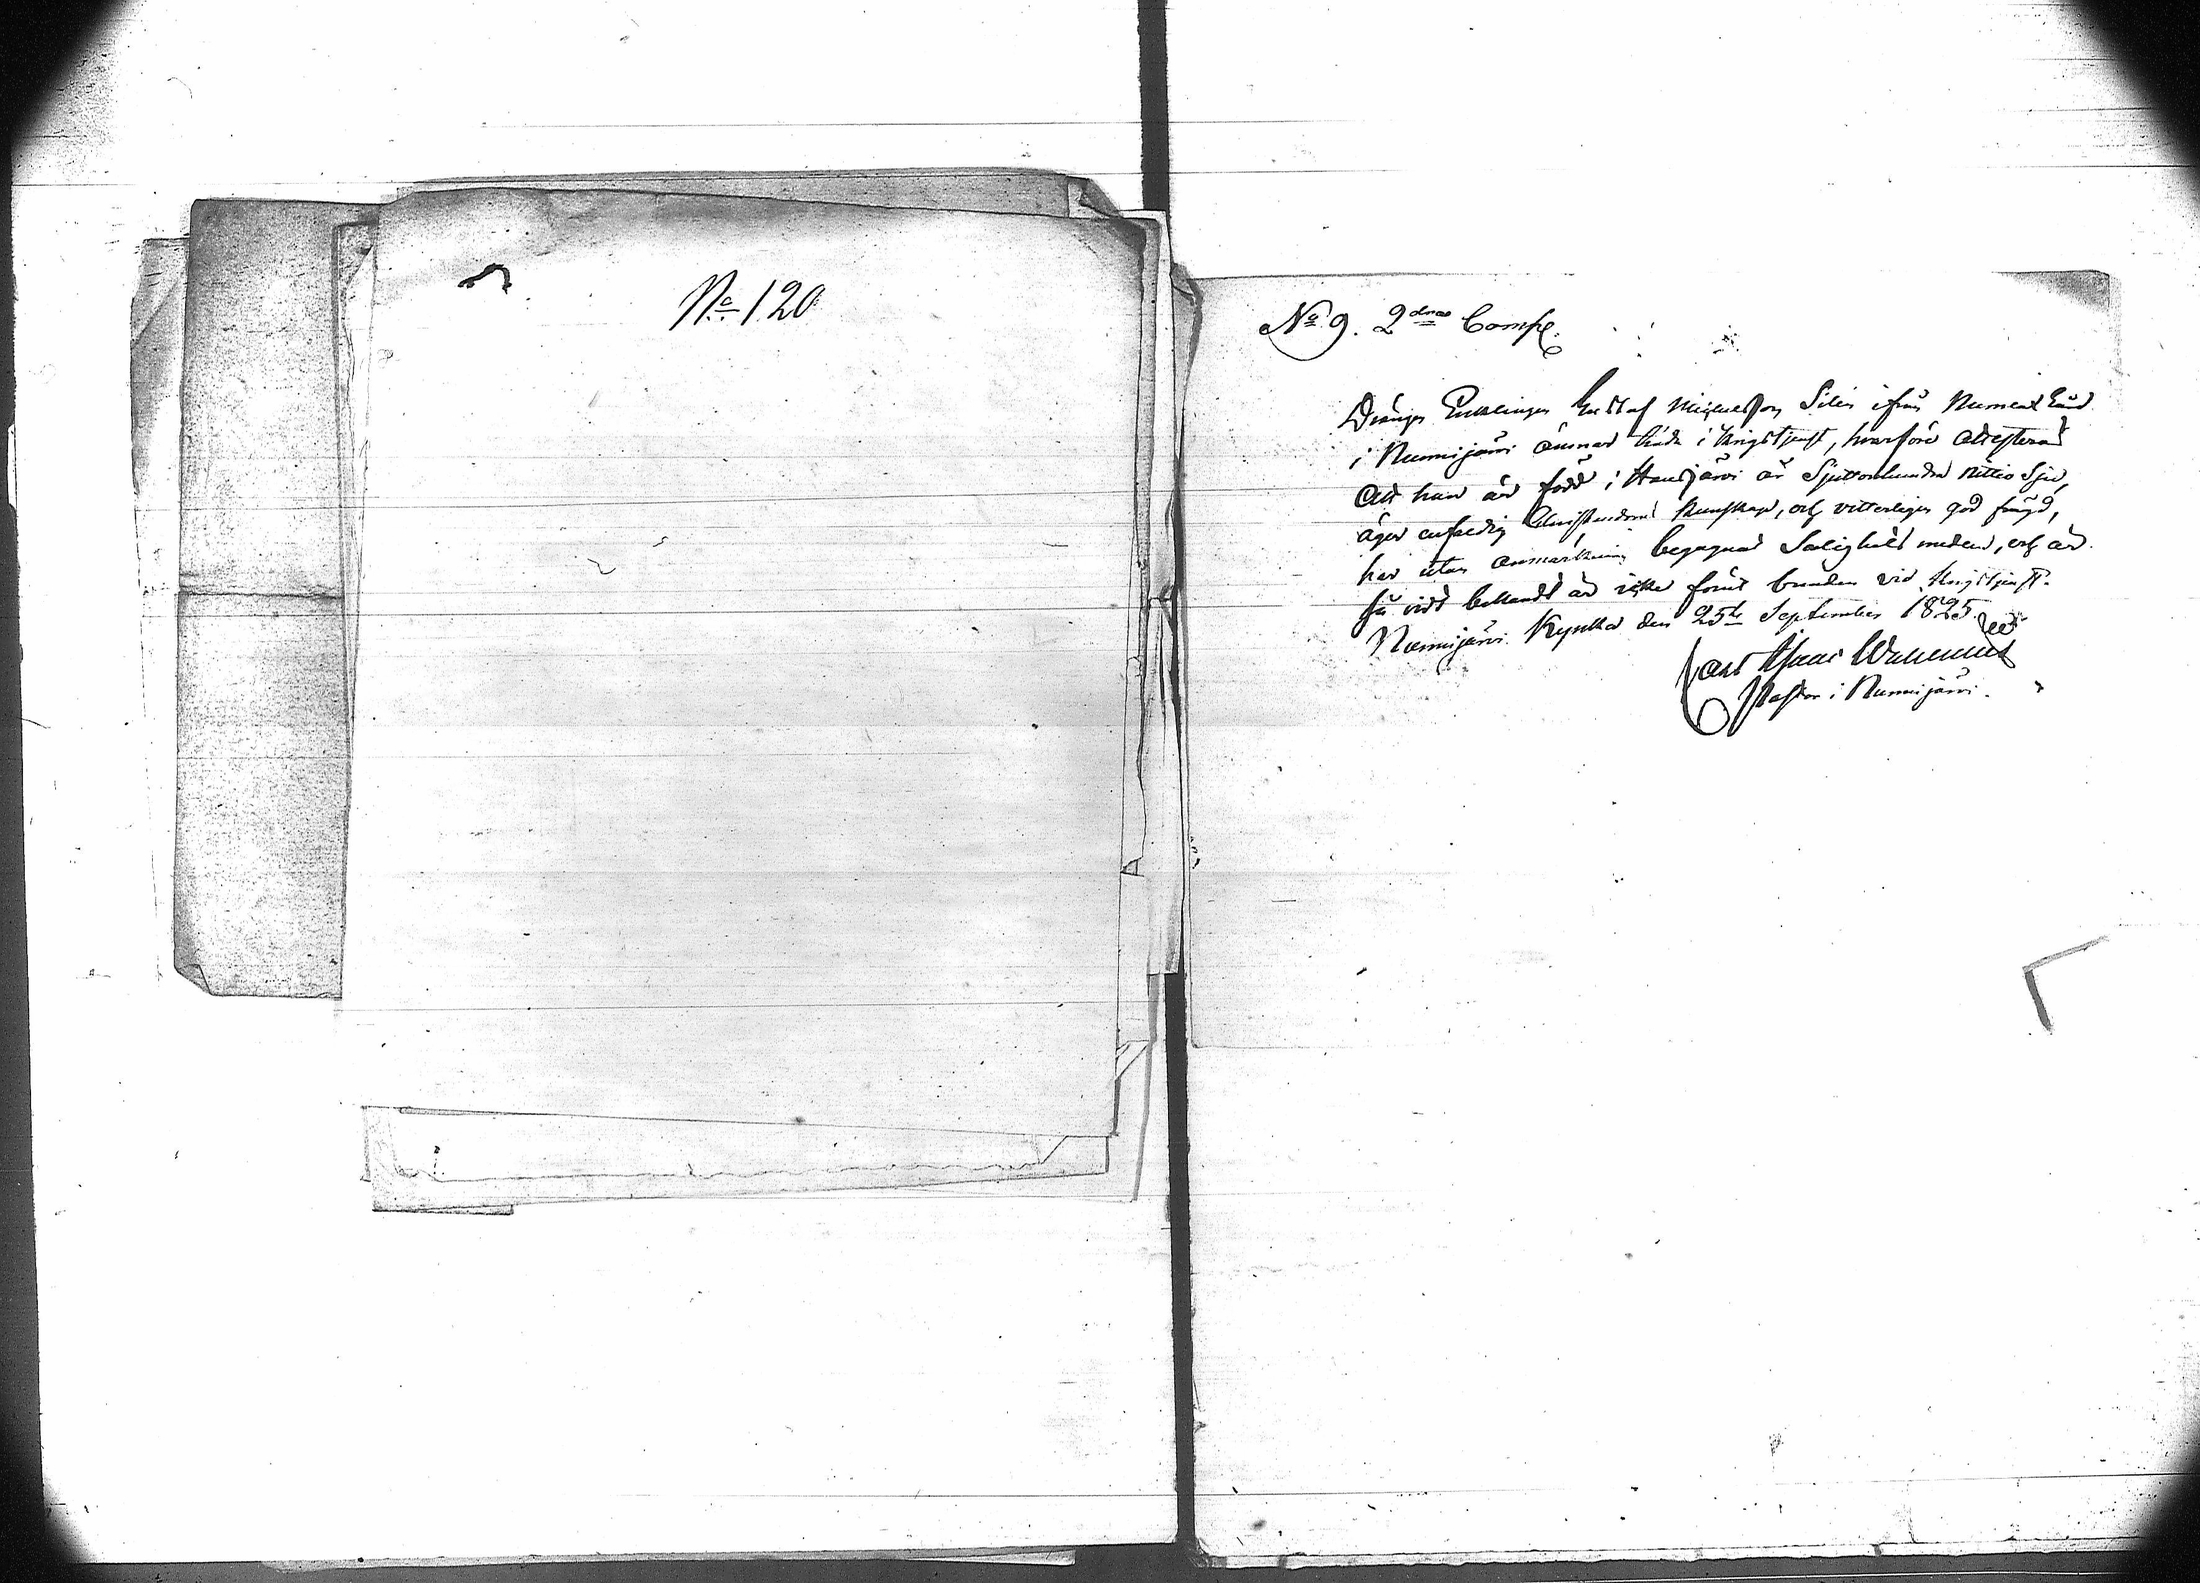 No 120
No 9. 2dra Comp.
Dränge Enklingen Gustaf Michelsson Silén ifrån Nummenkånd
i Nurmijärvi ämnar träda i krigstjenst, hvarföre attesteras
att han är född i Hausjärvi år Sjuttonhundra nittio Sju,
äger enfaldig Christendoms kunskap, och vitterligen god frägd,
har utan anmärkning begagnat Salighets medlen, och är
så vidt bekandt är icke förut bunden vid krigstjenst.
Nurmijärvi Kyrkka den 25te September 1825.
Carl Isaac Wallenius
Pastor i Nurmijärvi.